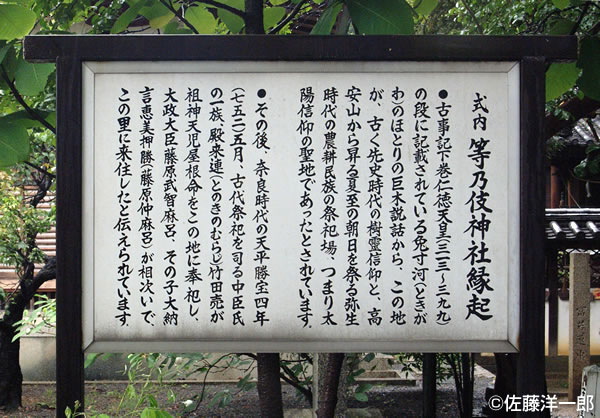 式内 等乃伎神社縁起
●古事記下巻仁徳天皇(三一三〜三九九)
の段に記載されている兔寸河(ときが
わ)のほとりの巨木説話から、この地
が、古く先史時代の樹霊信仰と、高
安山から昇る夏至の朝日を祭る弥生
時代の農耕民族の祭祀場、つまり太
陽信仰の聖地であったとされています。
●その後、奈良時代の天平勝宝四年
(七五二)五月、古代祭祀を司る中臣氏
の一族、殿来連(とのきのむらじ)竹田売が
祖神天児屋根命をこの地に奉祀し、
大政大臣藤原武智麻呂、その子大納
言恵美押勝(藤原仲麻呂)が相次いで、
この里に来住したと伝えられています。
©佐藤洋一郎